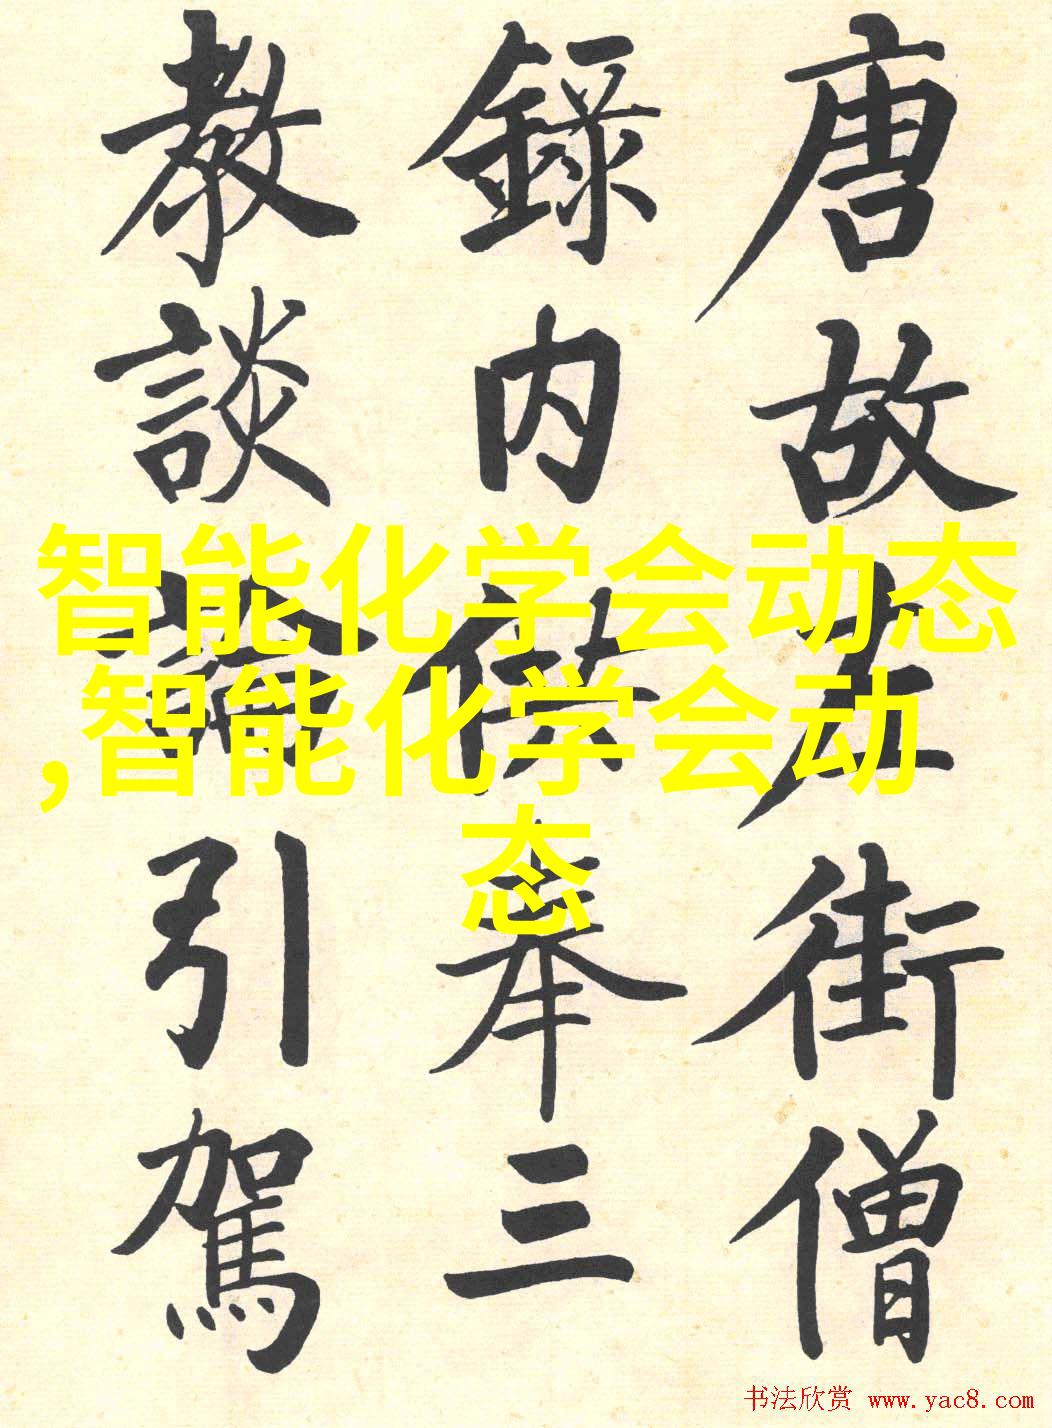 唐故左街僧
錄内供奉三
教談論引駕
智能化学会动态
,智能化学会动
态
书法欣赏 www.yac8.com